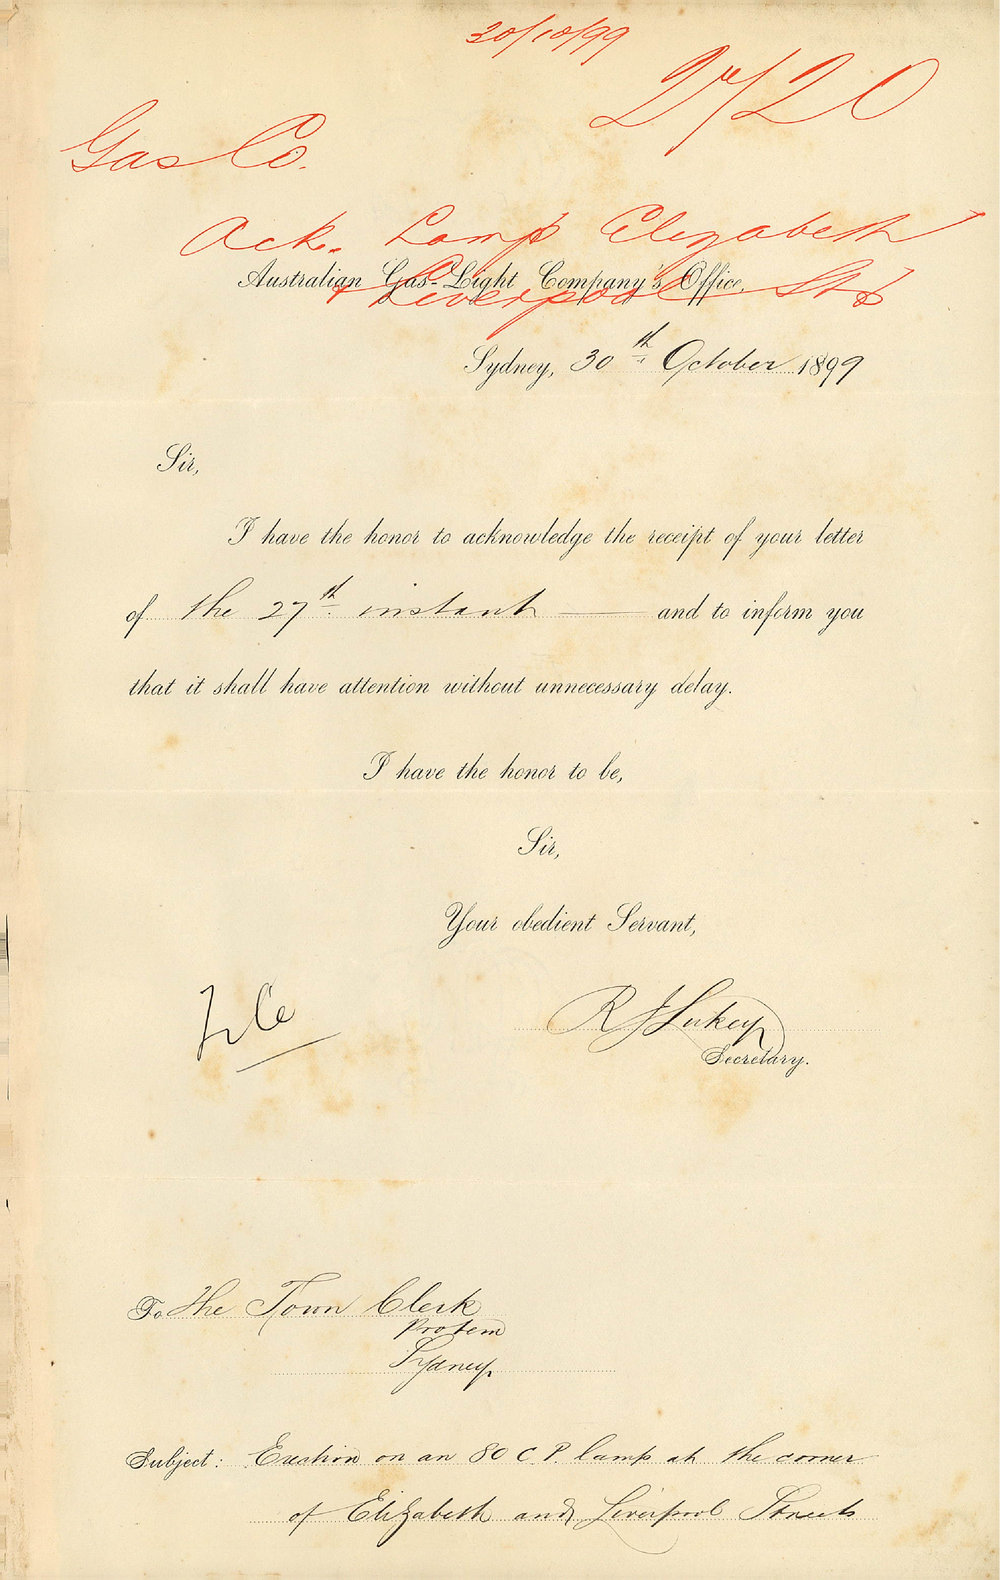 30/10/99
Gas Co.
Ack. Lamp Elizabeth
& Liverpool Sts
Australian Gas-Light Company's Office,
Sydney, 30th October 1899
Sir,
I have the honor to acknowledge the receipt of your letter
of the 27th instant and to inform you
that it shall have attention without unnecessary delay.
I have the honor to be,
Sir,
Your obedient Servant,
R J Lukey
Secretary.
To The Town Clerk
Protem
Sydney
Subject: Erection on an 80 C. P. lamp at the corner
of Elizabeth and Liverpool Streets